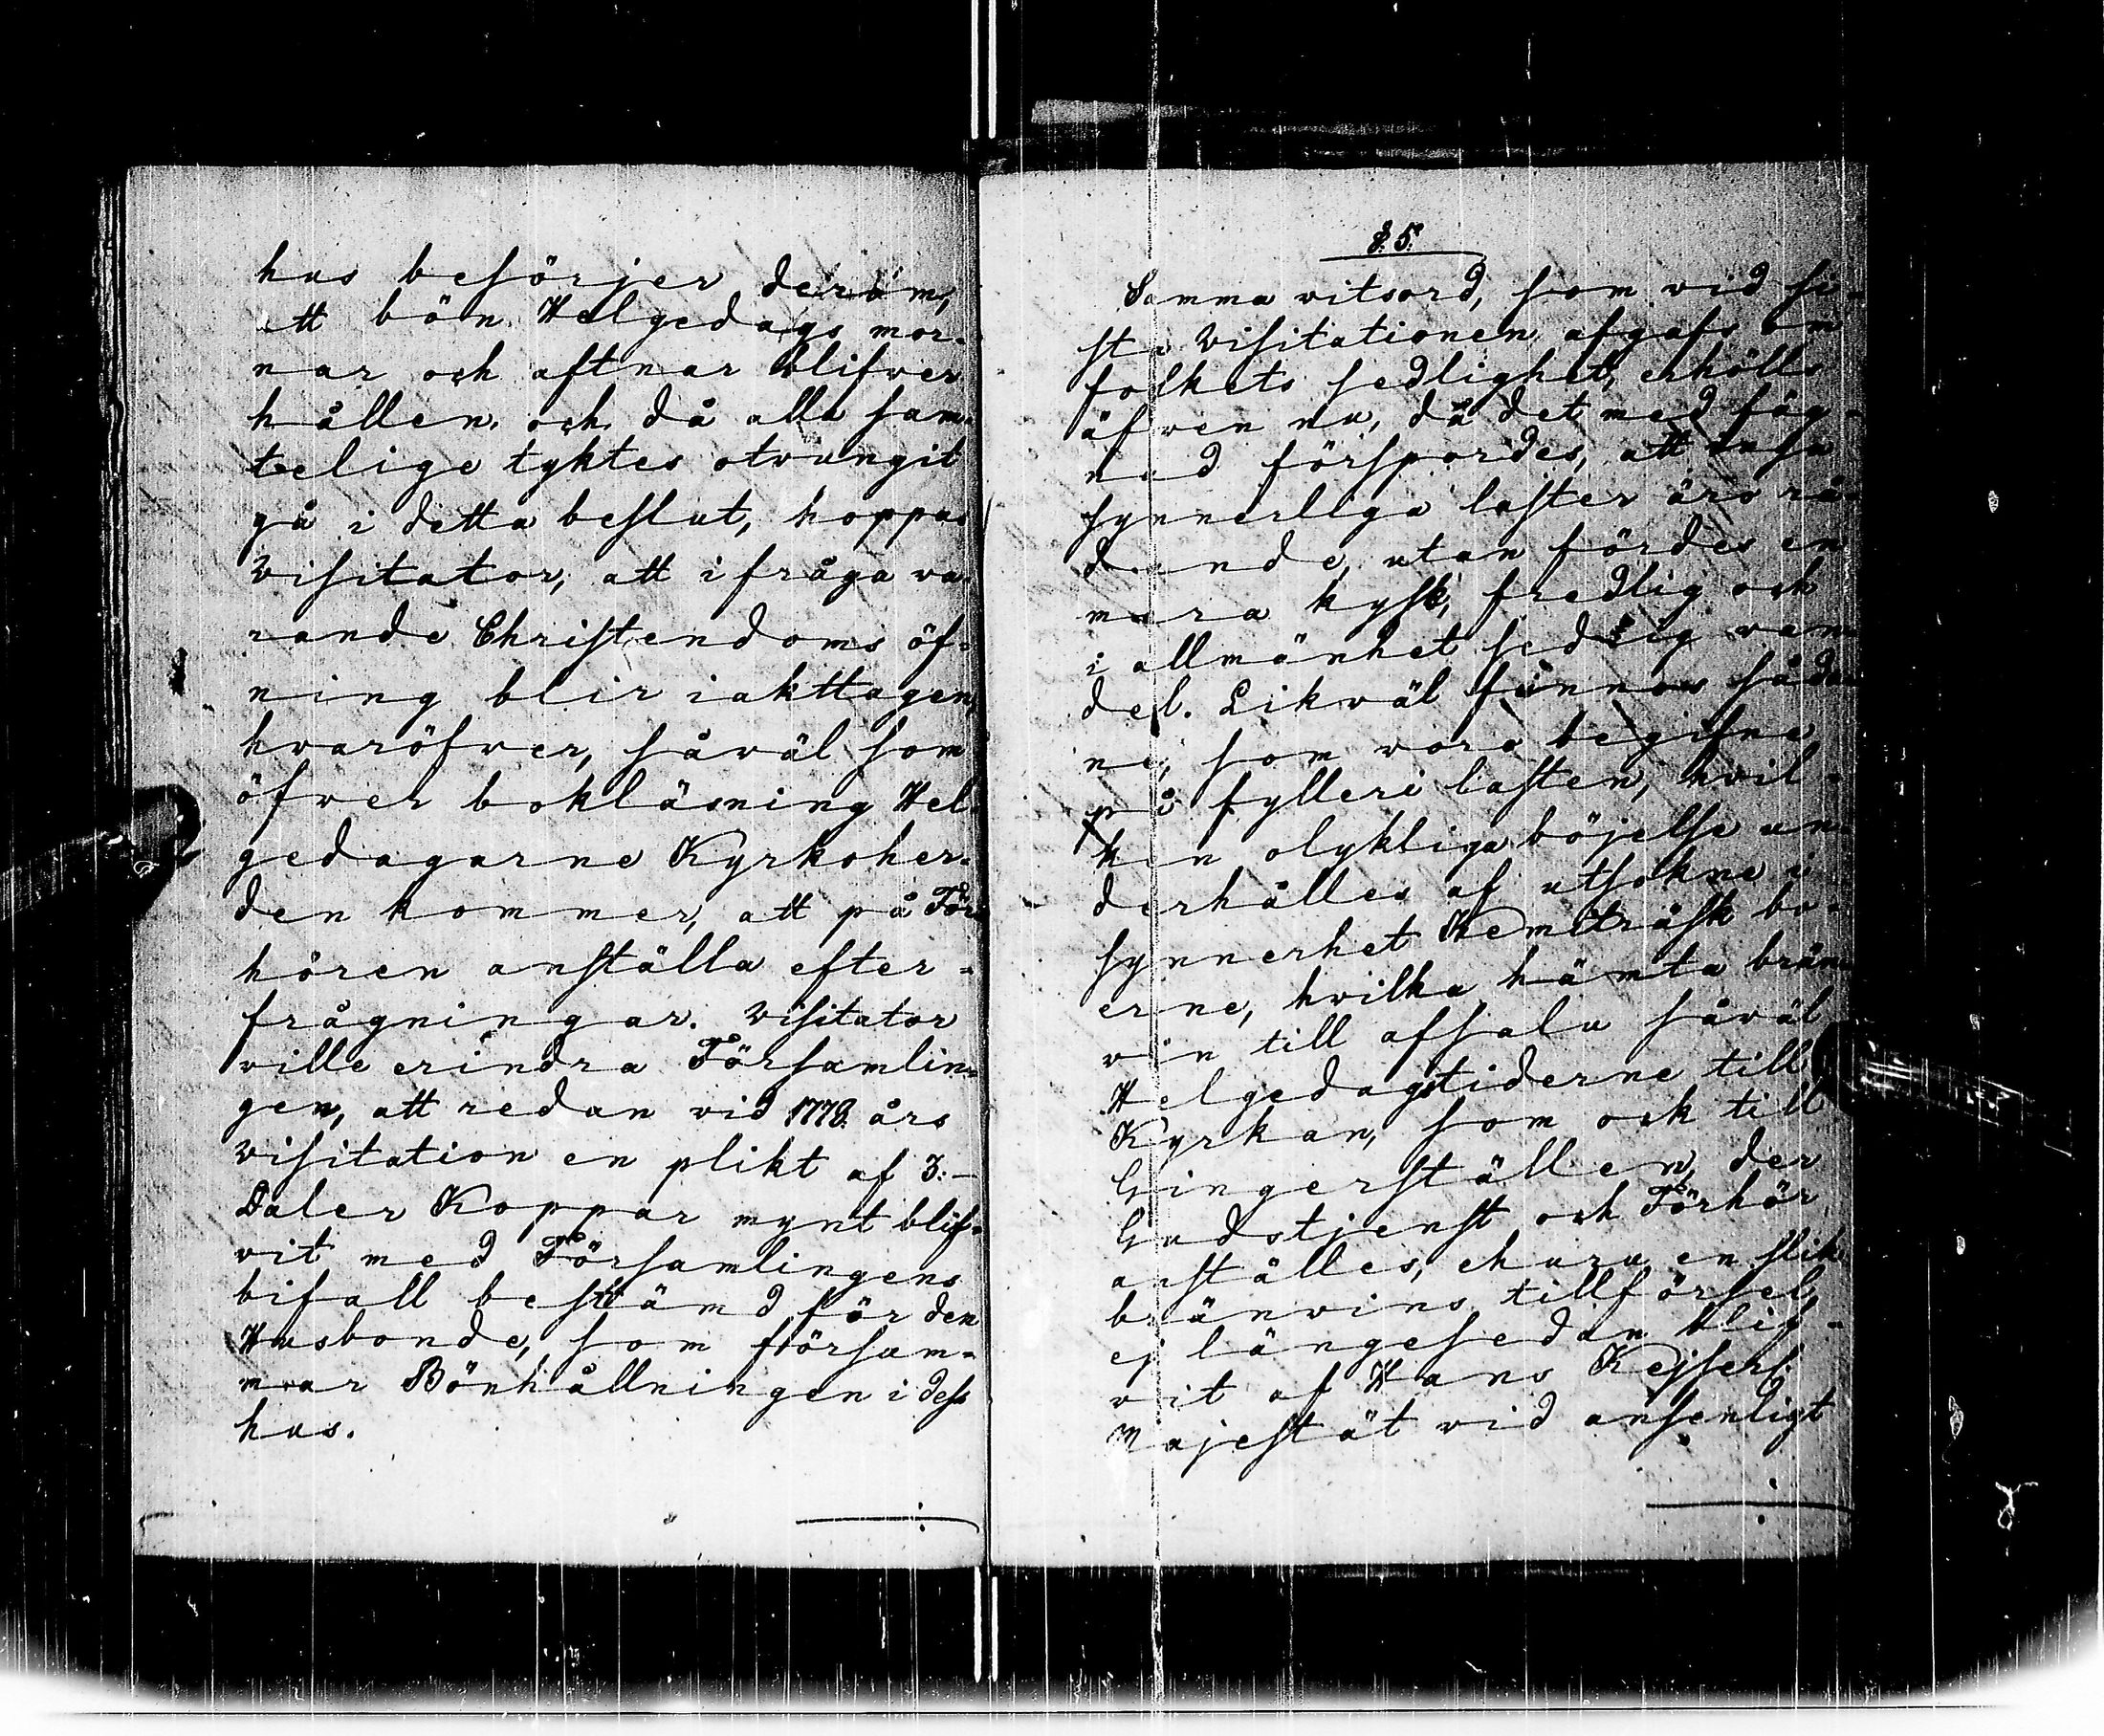 hus besörjer derom,
att bön Helgedags mor-
nar och aftnar blifver
hållen, och då alla sam-
telige tyktes otvungit
gå i detta beslut, hoppas
Visitator, att ifråga va-
rande Christendoms öf-
ning blir iakttagen,
hvaröfver, såväl som
öfver bokläsning Hel-
gedagarne Kyrkoher-
den kommer, att på För-
hören anställa efter-
frågningar. Visitator
ville erindra Församlin-
gen, att redan vid 1778 års
Visitation en plikt af 3:-
Daler Koppar mynt blif-
vit med Församlingens
bifall bestämd för den
Husbonde, som försam-
mar Bönhållningen i dess
hus.
§. 5.
Samma vitsord, som vid si-
sta Visitationen afgafs om
folkets sedlighet, erhölls
äfven nu, då det med fäg-
nad förspordes, att inga
synnerliga laster äro rå-
dande, utan fördes en
mera kysk, fredlig och
i allmänhet sedlig van-
del. Likväl funnos såda-
ne, som voro begifne
på fylleri lasten, hvil-
ken olykliga böjelse un-
derhålles af utsokne i
synnerhet Kemiträsk bo-
erne, hvilka hämta brän-
vin till afsalu såväl
Helgedagstiderne till
Kyrkan, som ock till
Gingerställen, der
Gudstjenst och Förhör
anställes, ehuru en slik
bränvins tillförsel,
ej längesedan blif-
vit af Hans Kejserl:
Majestät vid ansenligt